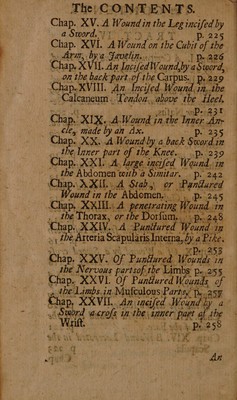 The CONTENTS.
Chap. XV. A Wound in the Leg incised by
a Sword. p. 225
Chap. XVI. A Wound on the Cubit of the
Arm, by a Javelin. p. 226
Chap. XVII. An Incised Wound, by a Sword,
on the back part of the Carpus. p. 229
Chap. XVIII. An Incised Wound in the
Calcaneum Tendon above the Heel.
p. 231
Chap. XIX. A Wound in the Inner An-
cle, made by an Ax. p. 235
Chap. XX. A Wound by a back Sword in
the Inner part of the Knee. p. 239
Chap. XXI. A large incised Wound in
the Abdomen with a Simitar. p. 242
Chap. XXII. A Stab, or Punctured
Wound in the Abdomen. p. 245
Chap. XXIII. A penetrating Wound in
the Thorax, or the Dorsum. p. 248
Chap. XXIV. A Punctured Wound in
the Arteria Scapularis Interna, by a Pike.
p. 253
Chap. XXV. Of Punctured Wounds in
the Nervous parts of the Limbs p. 255
Chap. XXVI. Of Punctured Wounds of
the Limbs in Musculous Parts, p. 257
Chap. XXVII. An incised Wound by a
Sword a cross in the inner part of the
Wrist. p. 258
An